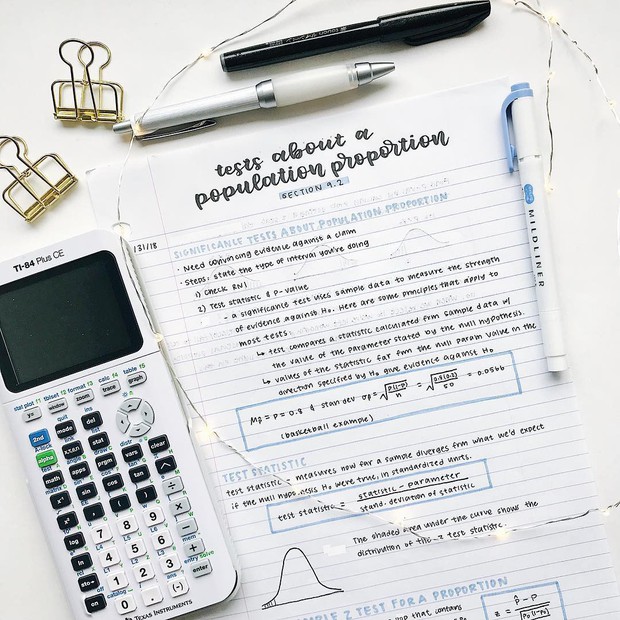 tests about a
population proportion
SECTION 9.2
1/31/18
SIGNIFICANCE TESTS ABOUT POPULATION PROPORTION
· Need convincing evidence against a claim
· Steps: state the type of interval you've doing
1) Check RNI
2) Test statistic & P-value
- a significance test uses sample data to measure the strength
of evidence against H₀. Here are some principles that apply to
most tests
↳ test compares a statistic calculated frm sample data w/
the value of the parameter stated by the null hypothesis.
↳ values of the statistic far frm the null param value in the
direction specified by H₀ give evidence against H₀
Mp̂ = p = 0.8 & stan dev σp̂ = √p(1-p)/n = √0.8(0.2)/50 = 0.0566
(basketball example)
TEST STATISTIC
test statistic - measures how far a sample diverges frm what we'd expect
if the null hypothesis H₀ were true, in standardized units.
test statistic = statistic - parameter / stand. deviation of statistic
The shaded area under the curve shows the
distribution of the z test statistic.
SAMPLE Z TEST FOR A PROPORTION
that contains
z = p̂ - p / √p₀(1-p₀)
MILDLINER
TI-84 Plus CE
stat plot f1 tblset f2 format f3 calc f4 table f5
y= window zoom trace graph
2nd mode del
quit ins
alpha X,T,θ,n stat
math apps prgm vars clear
x⁻¹ sin cos tan ^
x² , ( ) ÷
log 7 8 9 ×
ln 4 5 6 −
sto→ 1 2 3 +
on 0 . (−) enter
catalog entry solve
TEXAS INSTRUMENTS